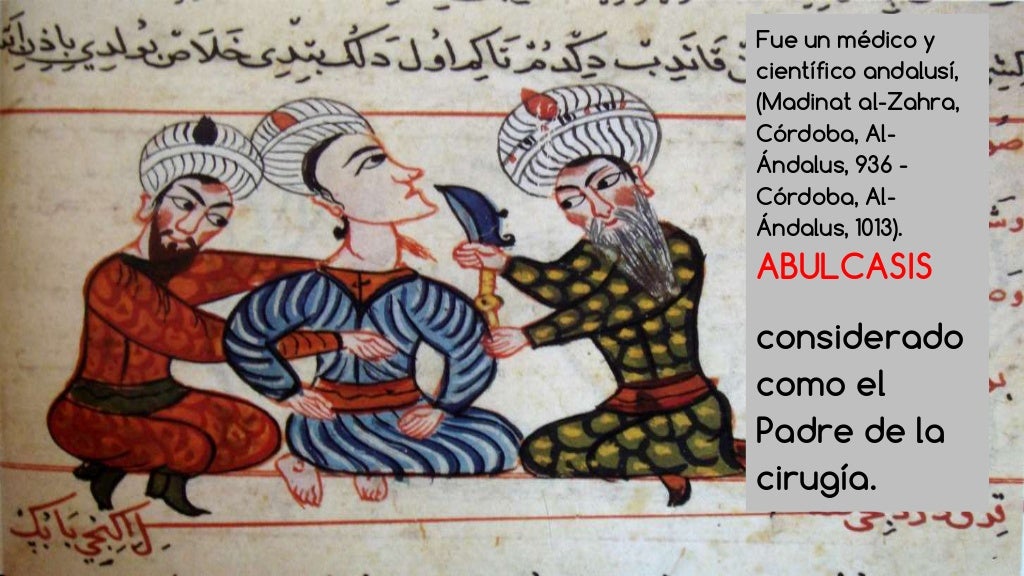 دِكْدُمْ تَاكِم اُولْ دَلكْ بِتْدِى خَلَاصْ بُولْدِي بِاِذْنِ
Fue un médico y
científico andalusí,
(Madinat al-Zahra,
Córdoba, Al-
Ándalus, 936 -
Córdoba, Al-
Ándalus, 1013).
ABULCASIS
considerado
como el
Padre de la
cirugía.
اِكِنْجِي بَابُكْ